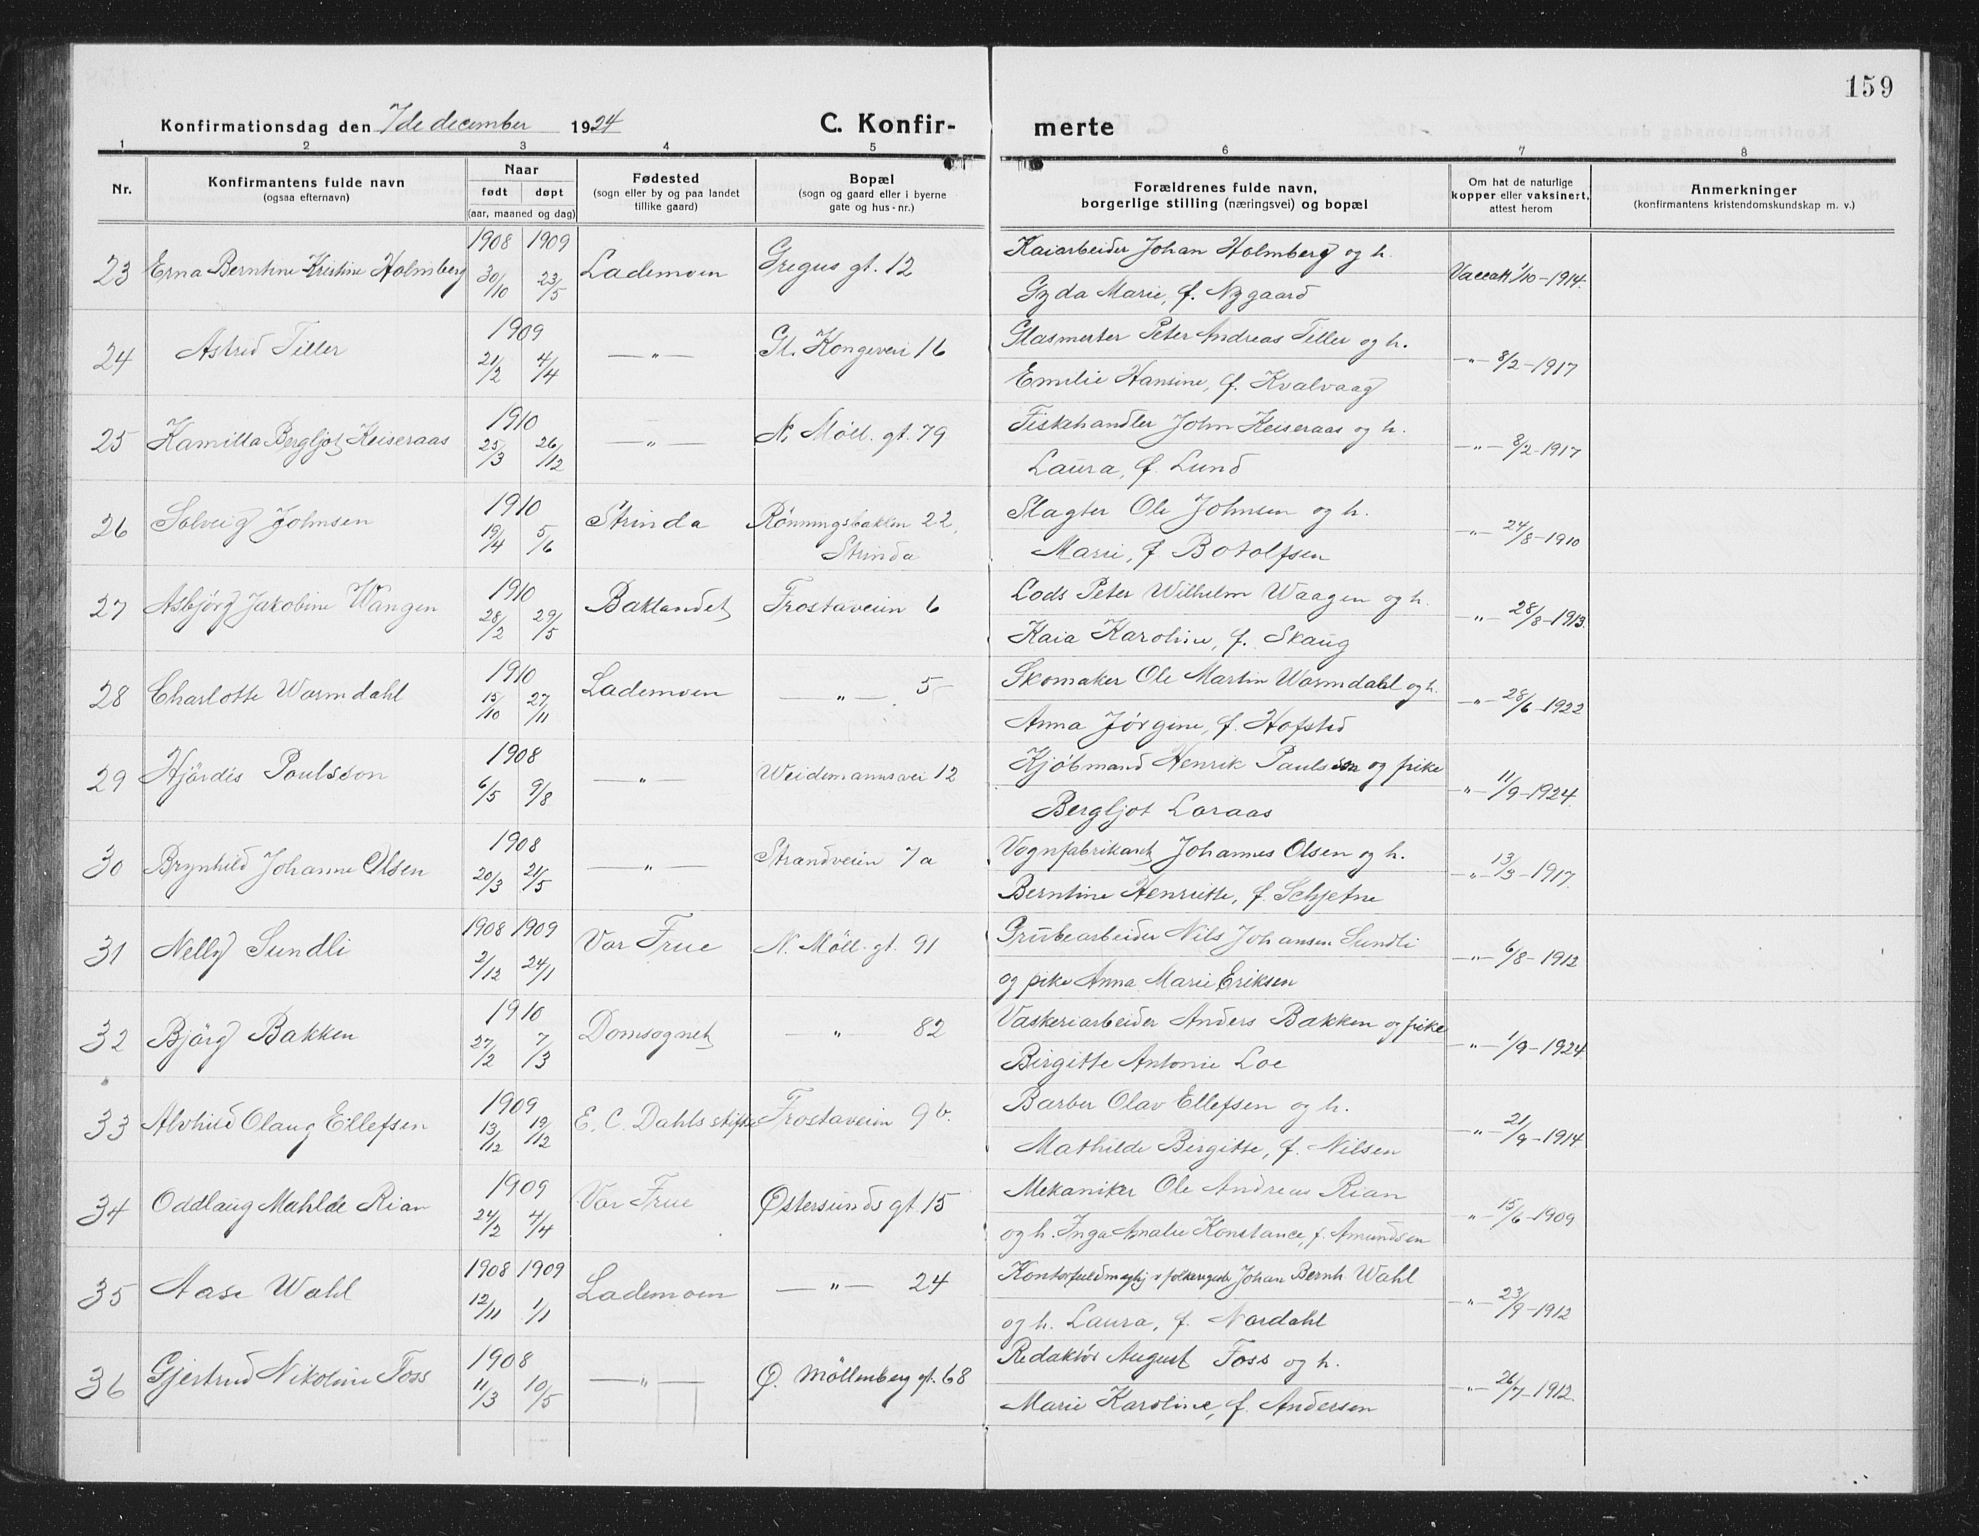 159
Konfirmationsdag den 7de december 1924 C. Konfir- merte
1 2 3 4 5 6 7 8
Nr.
Konfirmantens fulde navn
(ogsaa efternavn)
Naar
født døpt
(aar, maaned og dag)
Fødested
(sogn eller by og paa landet
tillike gaard)
Bopæl
(sogn og gaard eller i byerne
gate og hus-nr.)
Forældrenes fulde navn,
borgerlige stilling (næringsvei) og bopæl
Om hat de naturlige
kopper eller vaksinert,
attest herom
Anmerkninger
(konfirmantens kristendomskundskap m. v.)
1908 1909
23 Erna Berntine Kristine Holmberg 30/10 23/5 Lademoen Gregus gt. 12 Kaiarbeider Johan Holmberg og h.
Gyda Marie, f. Nygaard 1/10-1914.
1909
24 Astrid Tiller 21/2 4/4 —„— Gl. Kongevei 16 Glasmester Peter Andreas Tiller og h.
Emilie Hansine, f. Kvalvaag —„— 8/2-1917
1910
25 Kamilla Bergljot Keiseraas 25/3 26/12 —„— N. Möll. gt. 79 Fiskehandler John Keiseraas og h.
Laura, f. Lund —„— 8/2-1917
1910
26 Solveig Johnsen 19/4 5/6 Strinda Rönningsbakken 22,
Strinda
Slagter Ole Johnsen og h.
Marie, f Botolfsen —„— 24/8-1910
1910
27 Asbjörg Jakobine Wangen 28/2 29/5 Baklandet Frostaveien 6 Lods Peter Wilhelm Waagen og h.
Kaia Karoline, f. Skaug —„— 28/8-1913.
1910
28 Charlotte Warmdahl 15/10 27/11 Lademoen —„— 5 Skomaker Ole Martin Warmdahl og h.
Anna Jørgine, f. Hofstad —„— 28/6-1922
1908
29 Hjördis Poulsson 6/5 9/8 —„— Weidemannsvei 12 Kjøbmand Henrik Paulsson og pike
Bergljot Loraas —„— 11/9-1924.
1908
30 Brynhild Johanne Olsen 20/3 21/5 —„— Strandveien 7a Vognfabrikant Johannes Olsen og h.
Berntine Henriette, f. Schjetne —„— 13/3-1917.
1908 1909
31 Nelly Sundli 2/12 24/1 Vor Frue N. Möll. gt. 91 Grubearbeider Nils Johansen Sundli
og pike Anna Marie Eriksen —„— 6/8-1912
1910
32 Bjärg Bakken 27/2 7/3 Domsognet —„— 82 Vaskeriarbeider Anders Bakken og pike
Birgitte Antonie Loe —„— 1/9-1924
1909
33 Alvhild Olaug Ellefsen 13/12 19/12 E. C. Dahls stiftelse Frostaveien 9b. Barber Olav Ellefsen og h.
Mathilde Birgitte, f. Nilsen —„— 21/9-1914
1909
34 Oddlaug Mahlde Rian 24/2 4/4 Vor Frue Østersunds gt 15 Mekaniker Ole Andreas Rian
og h. Inga Amalie Konstance, f. Amundsen —„— 15/6-1909
1908 1909
35 Aase Wahl 12/11 1/1 Lademoen —„— 24 Johan Bernh. Wahl
og h. Laura, f. Nordahl —„— 23/9-1912
1908
36 Gjertrud Nikoline Foss 11/3 10/5 —„— Ø. Möllenberg gt. 68 Redaktør August Foss og h.
Marie Karoline, f. Andersen —„— 26/7-1912.